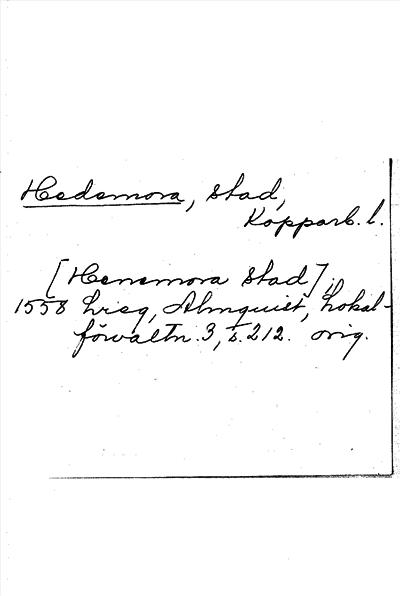 Hedemora, stad,
Kopparb. l.
[Henemora Stad] i
1558 hrsg, Almquist, Lokal-
förvaltn. 3, s. 212. orig.